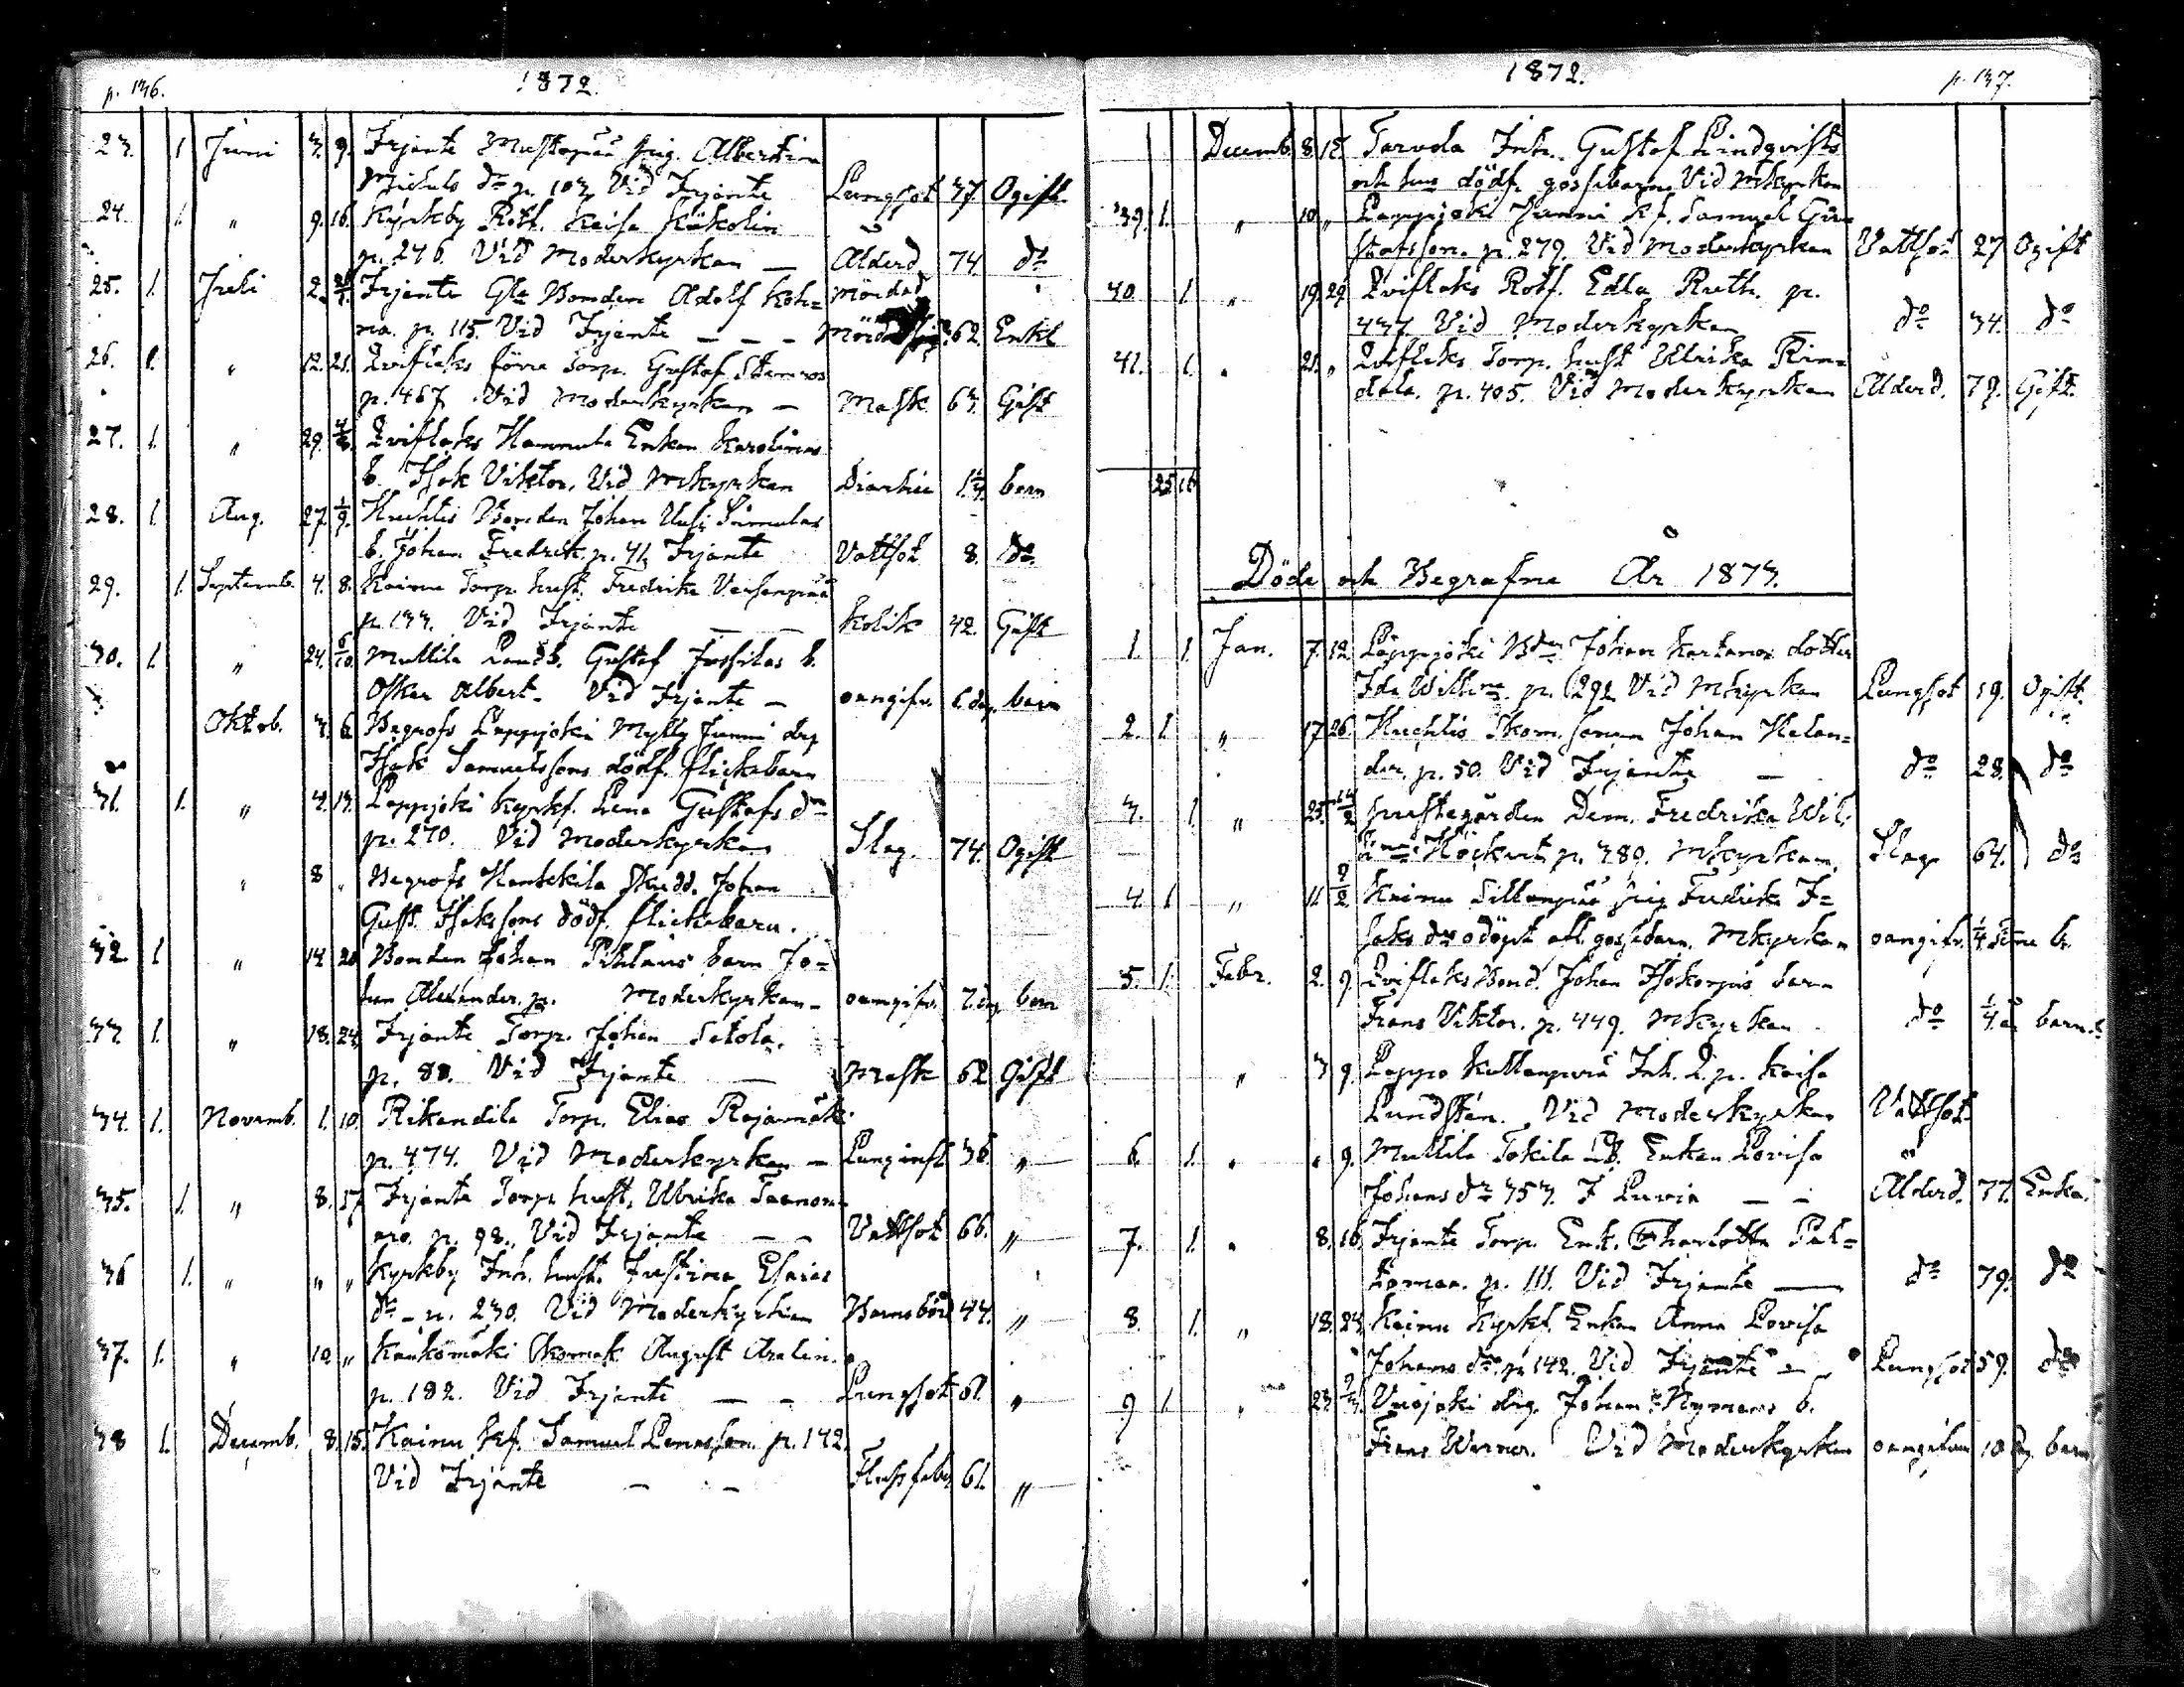 p. 136. 1872.
23. 1 Juni 3. 9. Irjante Mustapää pig. Albertina
Michels dr p. 103 Vid Irjante Lungsot 37 Ogift
24 1. " 9. 16. Kyrkby Rotf. Kaisa
p. 276. Vid Moderkyrkan — Ålderd. 74 do
25. 1. Juli 2. Irjante Gla Bonden Adolf Koh= Mördad
na. p. 115. Vid Irjante — — — 62. Enkl
26. 1. " 12. 21. Qviflaks förra Torp. Gustaf Stenroos
p. 467 Vid Moderkyrkan — Mask 63. Gift
27. 1. " 29. 4/8. Qviflaks Hannula Enkan Karolinas
b. Isak Viktor. Vid Mkyrkan Diarhie 1 1/4. barn
28. 1. Aug. 27. 1/9. Huchtis Bonden Johan Uusi
b. Johan Fredrik p. 41, Irjante Vattsot 8. do
29. 1. Septemb. 4. 8. Kainu Torp. hust. Fredrika
p. 133. Vid Irjante — — Kolik 42. Gift
30. 1. " 24. 6/10. Mullila Landb. Gustaf Jussilas b.
Oskar Albert. Vid Irjante — oangifv. 6 dag. barn
Oktob. 3. 6 Begrofs Lappijoki Mylly Junni drg
Isak Samuelssons dödf. flickebarn
31. 1. " 4. 13. Lappijoki kyrkf. Lena Gustafs dr
p. 270. Vid Moderkyrkan Slag. 74. Ogift
" 8 " Begrofs Hankkila Skudd. Johan
Gust. Isakssons dödf. flickebarn.
32. 1 " 14. 20 Bonden Johan barn Jo=
han Alexander. p. Moderkyrkan — oangifv. 7 dag barn
33. 1. " 18. 24. Irjante Torp. Johan Setola.
p. 88. Vid Irjante — Mask 62 Gift
34. 1. Novemb. 1. 10. Rikandila Torp. Elias Rajamäki
p. 474. Vid Moderkyrkan — Lunginfl 36. "
35. 1. " 8. 17 Irjante Torp. hust. Ulrika
p. 98. Vid Irjante — — Vattsot 66. "
36 1. " " " Kyrkby Inh. hust. Justina Esaias
dr — p. 230. Vid Moderkyrkan Barnsbörd 44. "
37. 1. " 10. " Kaukomäki Skomak. August
p. 182. Vid Irjante — — Lungsot 61. "
38 1. Decemb. 8. 15. Kainu kf. Samuel p. 142.
Vid Irjante — — 61. "
1872. p. 137.
Decemb. 8. 12. Tarvola Inh. Gustaf Lindqvists
och hus dödf. gossebarn Vid Mkyrkan
39. 1. " 10. " Lappijoki Junni kf. Samuel Gu=
stafsson. p. 279. Vid Moderkyrkan Vattsot 27 Ogift
40. 1. " 19. 29. Qviflaks Rotf. Edla Ruth. p.
437 Vid Moderkyrkan — do 34. do
41. 1. " 21. " Qviflaks Torp. hust Ulrika Rin=
dala. p. 405. Vid Moderkyrkan Ålderd. 79. Gift.
25 16
Döde och Begrafne År 1873.
1. 1. Jan. 7. 12. Lappijoki Bden Johan Kartanos dotter
Ida Wilhna. p. 291 Vid Mkyrkan Lungsot 19. Ogift
2. 1. " 17 26. Huchtis Skom. sonen Johan Helan=
der. p. 50. Vid Irjante — do 28. do
3. 1. " 25. Prestegården Dem. Fredrika Wil=
p. 389. Mkyrkan Slag 64. do
4. 1 " 11 2/2. Kainu Sillanpää pig Fredrika I=
saks drs odöpt afl. gossebarn. Mkyrkan oangifv. b.
5. 1. Febr. 2. 9 Qviflaks Bond. Johan barn
Frans Viktor. p. 449. Mkyrkan do 1/4 å barn.
" 3 9. Lappo Inh. Q. p. Kaisa
Lundstén. Vid Moderkyrkan Vattsot
6. 1. " " 9. Mullila Tokila Enkan Lovisa
Johans dr 353. I Luvia — — Ålderd. 77. Enka.
7. 1. " 8. 16. Irjante Torp. Enk. Charlotta
p. 111. Vid Irjante — do 79. do
8. 1. " 18. 24. Kainu Kyrkf. Enkan Anna Lovisa
Johans dr p. 142. Vid Irjante — Lungsot 59. do
9 1. " 23. 2/3. Vuojoki drg. Johan Nymans b.
Frans Werner. Vid Moderkyrkan oangifven 10 dag barn